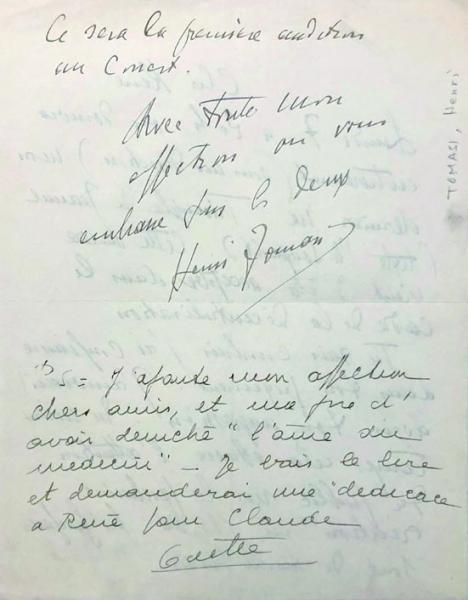 Ce sera la première audition
au Concert.
Avec toute mon
affection on vous
embrasse tous les deux
Henri Tomasi
TOMASI, Henri
PS = J'ajoute mon affection
chers amis, et ma joie d'
avoir deniché "l'âme du
medecin" - Je vais le lire
et demanderai une "dedicace
a René pour Claude
Odette